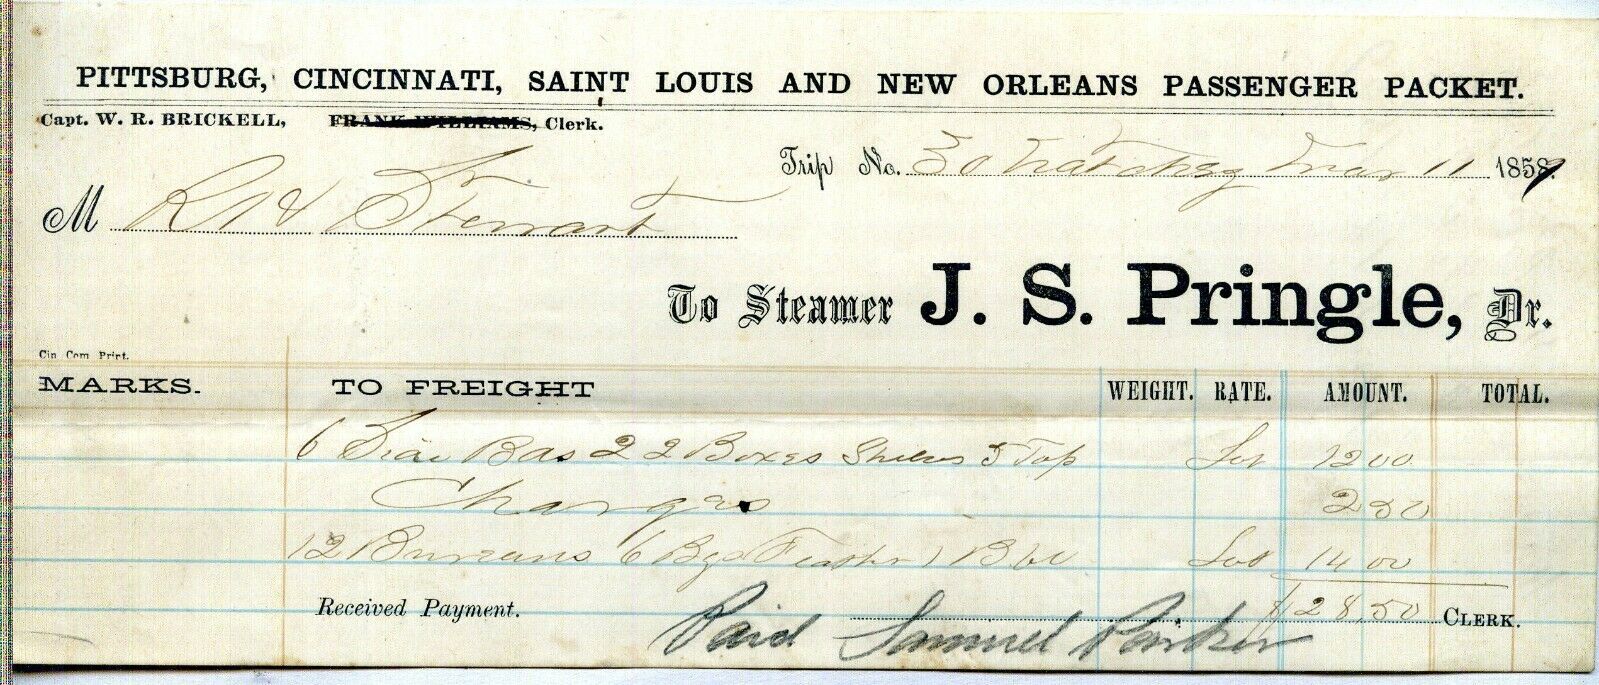 PITTSBURG, CINCINNATI, SAINT LOUIS AND NEW ORLEANS PASSENGER PACKET.
Capt. W. R. BRICKELL, FRANK WILLIAMS, Clerk.
Trip No. 30 Natchez Mar 11 1859
M R H Stewart
To Steamer J. S. Pringle, Dr.
Cin Com Print.
MARKS. TO FREIGHT WEIGHT. RATE. AMOUNT. TOTAL.
6 Bds 2 2 Boxes 5 Top Lot 12 00
Charges 2 50
12 Bureaus 6 Feather 1 Lot 14 00
Received Payment. $28.50 CLERK.
Paid Samuel Parker